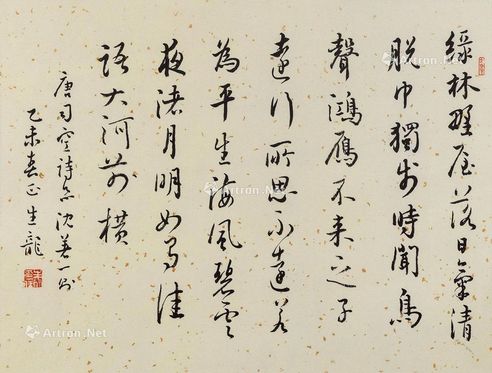 綠林野屋落日氣清
脫巾獨步時聞鳥
聲鴻鴈不來之子
遠行所思不遠若
為平生海風碧雲
夜渚月明如有佳
語大河前橫
唐司空詩品沈著一則
乙未春正生龍
Artron.Net
Artron.Net
Artron.Net
Artron.Net